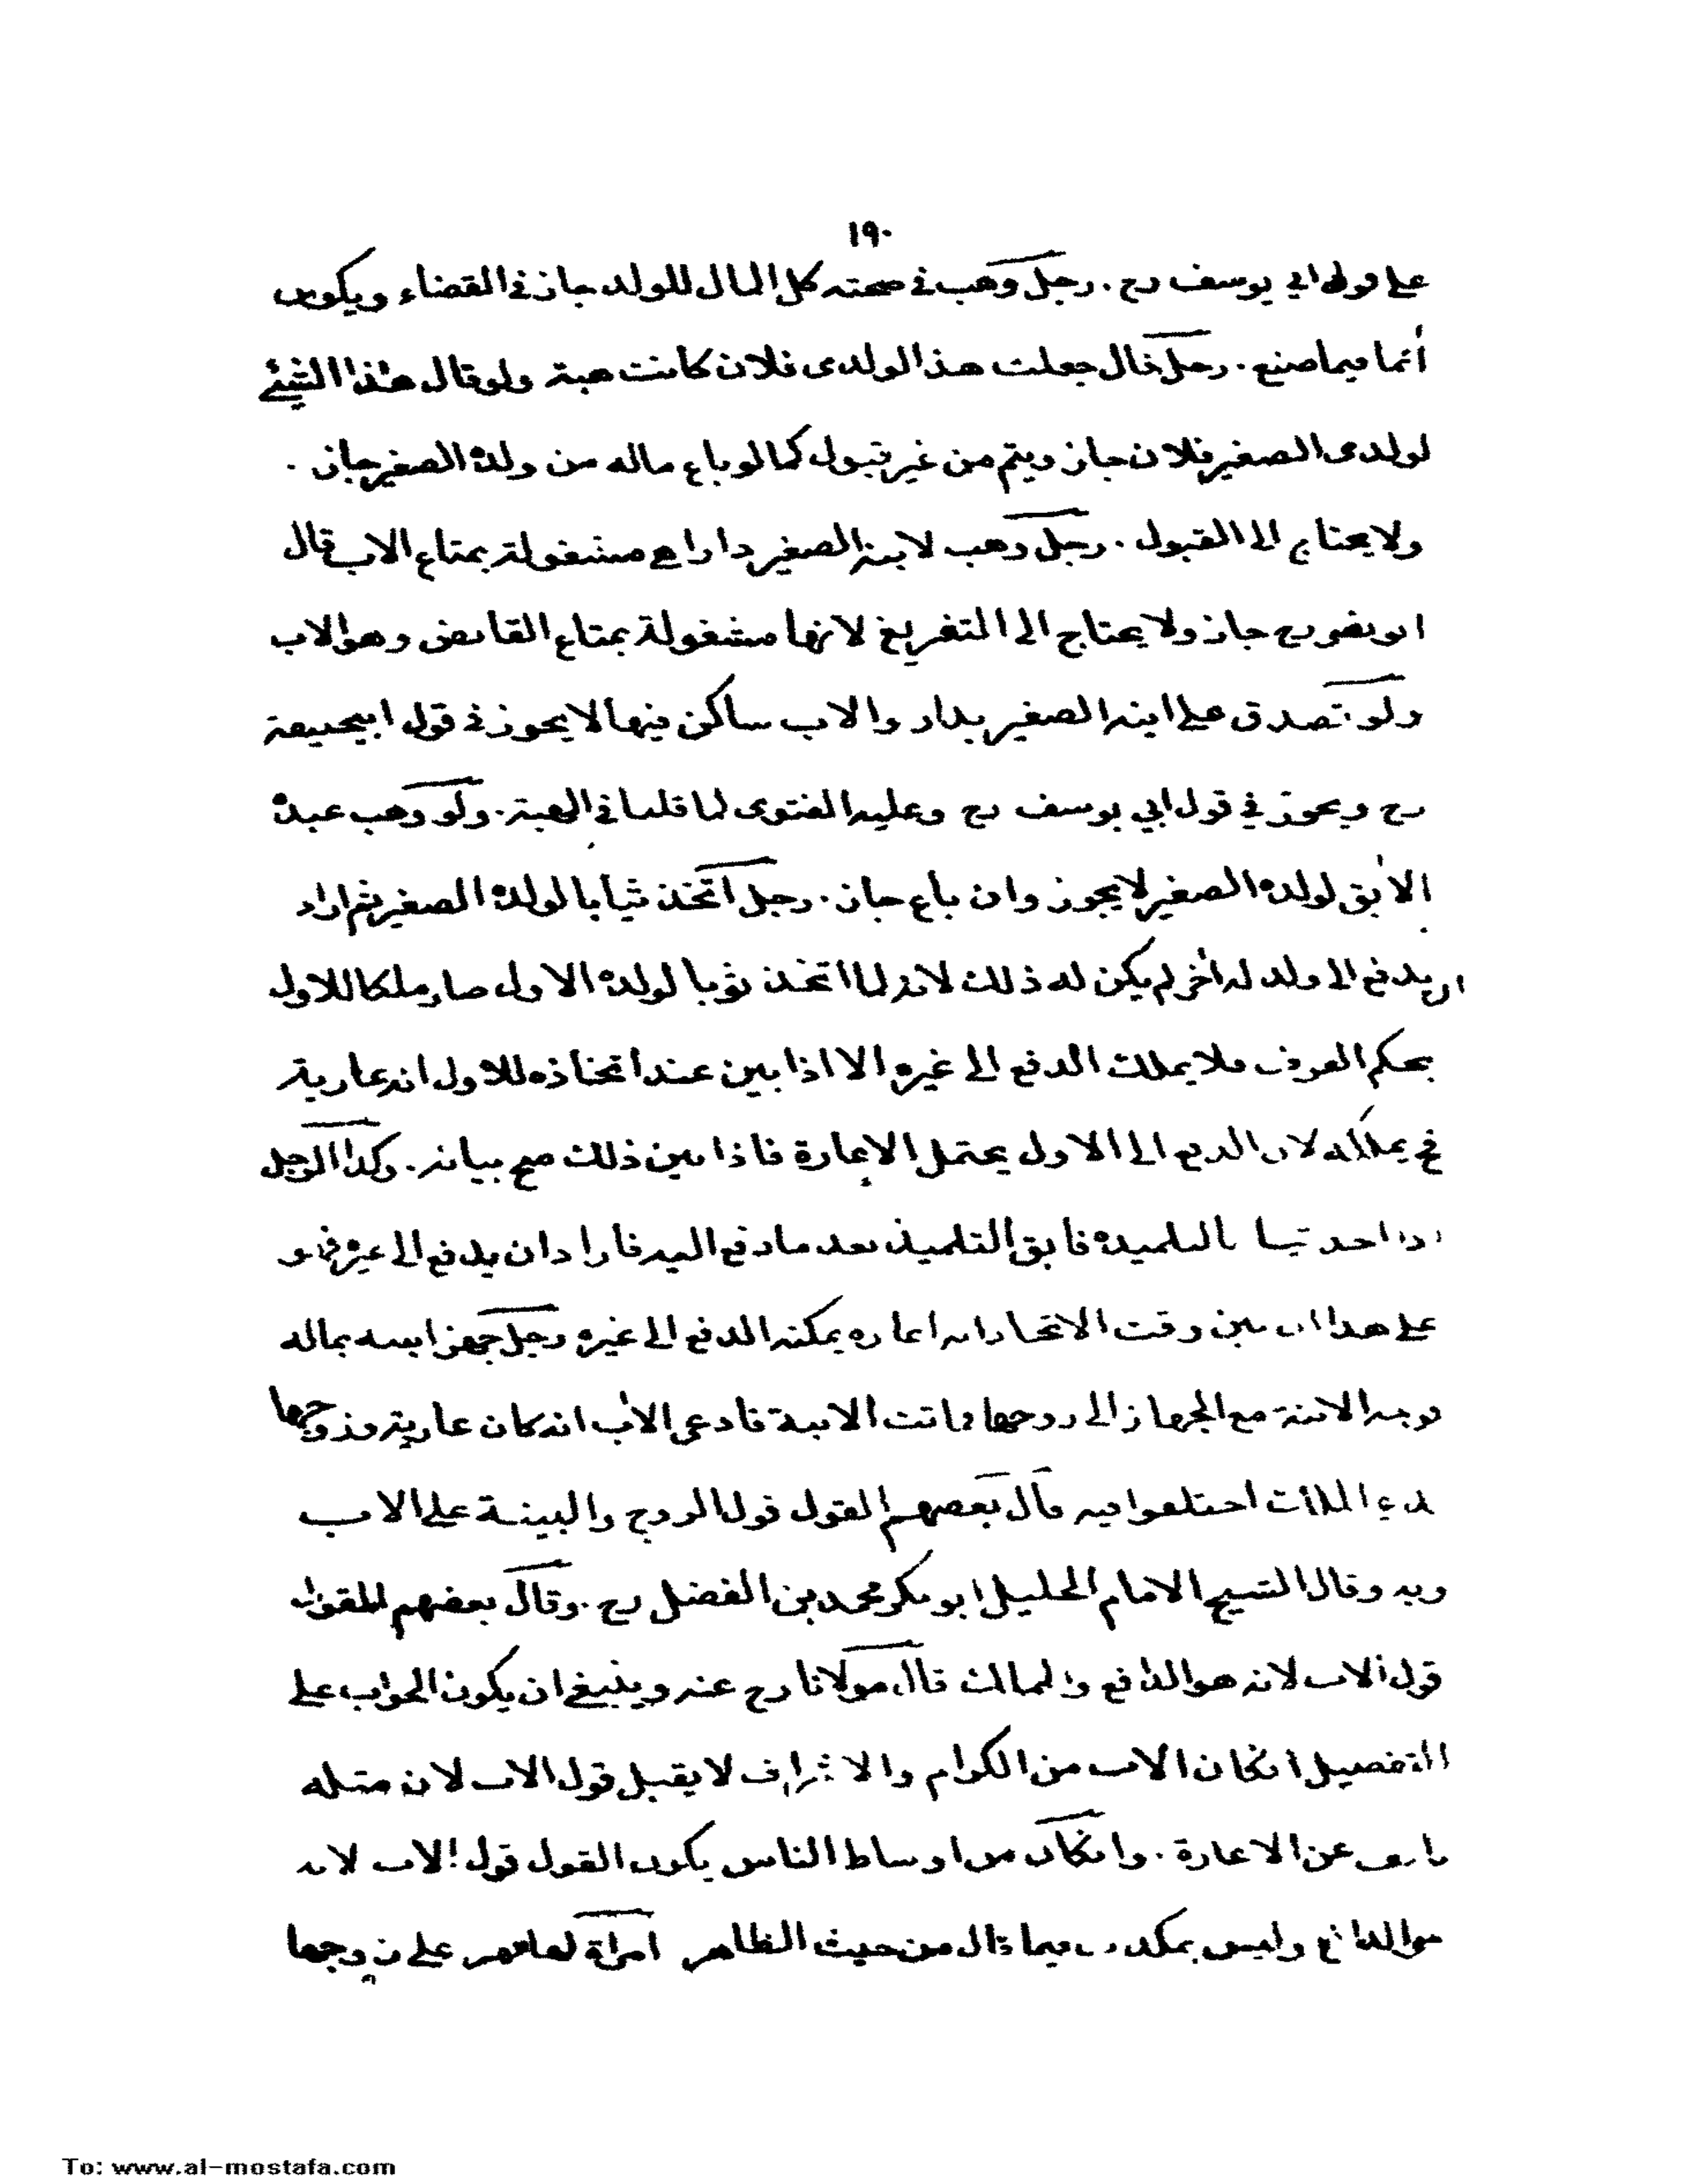 ١٩٠
على قول ابي يوسف رح . رجل وهب في صحته كل المال للولد جاز في القضاء ويكون
أثما فيما صنع . رجل قال جعلت هذا لولدى فلان كانت هبة ولو قال هذا الشيئ
لولدى الصغير فلان جاز ويتم من غير قبول كما لو باع ماله من ولده الصغير جاز .
ولا يحتاج الى القبول . رجل وهب لابنه الصغير دارا هي مشغولة بمتاع الاب قال
ابو نصر رح جاز ولا يحتاج الى التفريغ لانها مشغولة بمتاع القابض وهو الاب
ولو تصدق على ابنه الصغير بدار والاب ساكن فيها لا يجوز في قول ابيحنيفة
رح ويجوز في قول ابي يوسف رح وعليه الفتوى لما قلنا في الهبة . ولو وهب عبده
الأبق لولده الصغير لا يجوز وان باع جاز . رجل اتخذ ثيابا لولده الصغير ثم اراد
ان يدفع الى ولد له أخر لم يكن له ذلك لانه لما اتخذ ثوبا لولده الاول صار ملكا للاول
بحكم العرف فلا يملك الدفع الى غيره الا اذا بين عند اتخاذه للاول انه عارية
فح يملكه لان الدفع الى الاول يحتمل الاعارة فاذا بين ذلك صح بيانه . وكذا الرجل
اذا اتخذ ثيابا لتلميذه فابق التلميذ بعد ما دفع اليه فاراد ان يدفع الى غيره فهو
على هذا ان بين وقت الاتخاذ انه اعاره يمكنه الدفع الى غيره رجل جهز ابنته بماله
فوجه الابنة مع الجهاز الى زوجها فماتت الابنة فادعى الأب انه كان عارية وزوجها
يدعي الملك اختلفوا فيه قال بعضهم القول قول الزوج والبينة على الاب
وبه وقال الشيخ الامام الجليل ابو بكر محمد بن الفضل رح . وقال بعضهم القول
قول الاب لانه هو الدافع والمالك قال مولانا رح عنه وينبغي ان يكون الجواب على
التفصيل انكان الاب من الكرام والاشراف لا يقبل قول الاب لان مثله
يأنف عن الاعارة . وانكان من اوساط الناس يكون القول قول الاب لانه
هو الدافع وليس بمكذب فيما قال من حيث الظاهر امرأة لها مهر على زوجها
To: www.al-mostafa.com